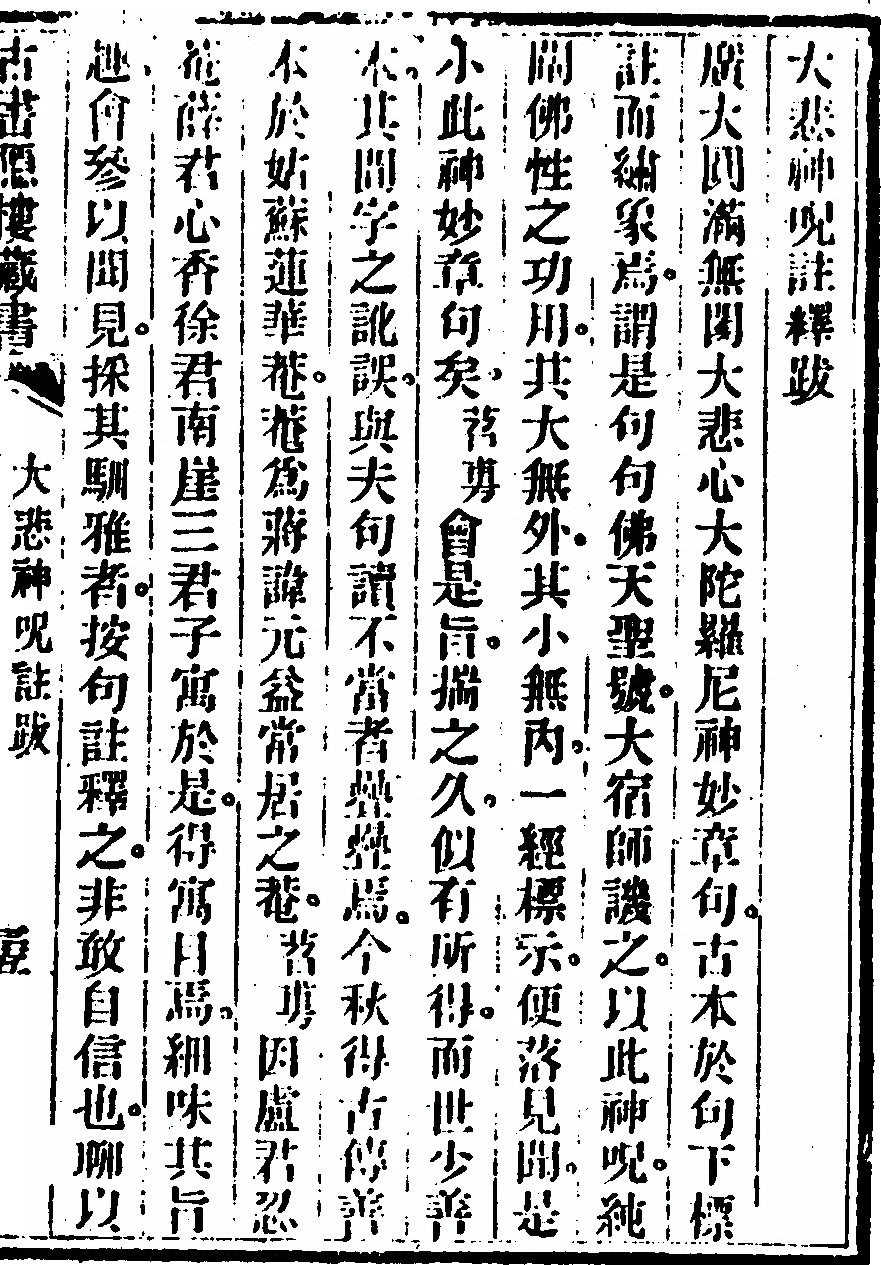 大悲神呪註釋跋
廣大圓滿無閡大悲心大陀羅尼神妙章句。古本於句下標
註而繡象焉。謂是句句佛天聖號。大宿師譏之。以此神呪。純
開佛性之功用。其大無外。其小無內。一經標示。便落見聞。是
小此神妙章句矣。茗嵪會是旨。揣之久。似有所得。而世少善
本。其間字之訛誤。與夫句讀不當者纍纍焉。今秋得古傳善
本於姑蘇蓮華菴。菴為蔣諱元益常居之菴。茗嵪因盧君忍
菴薛君心香徐君南崖三君子寓於是。得寓目焉。細味其旨
趣。會參以聞見。採其馴雅者。按句註釋之。非敢自信也。聊以
古書隱樓藏書
大悲神呪註跋